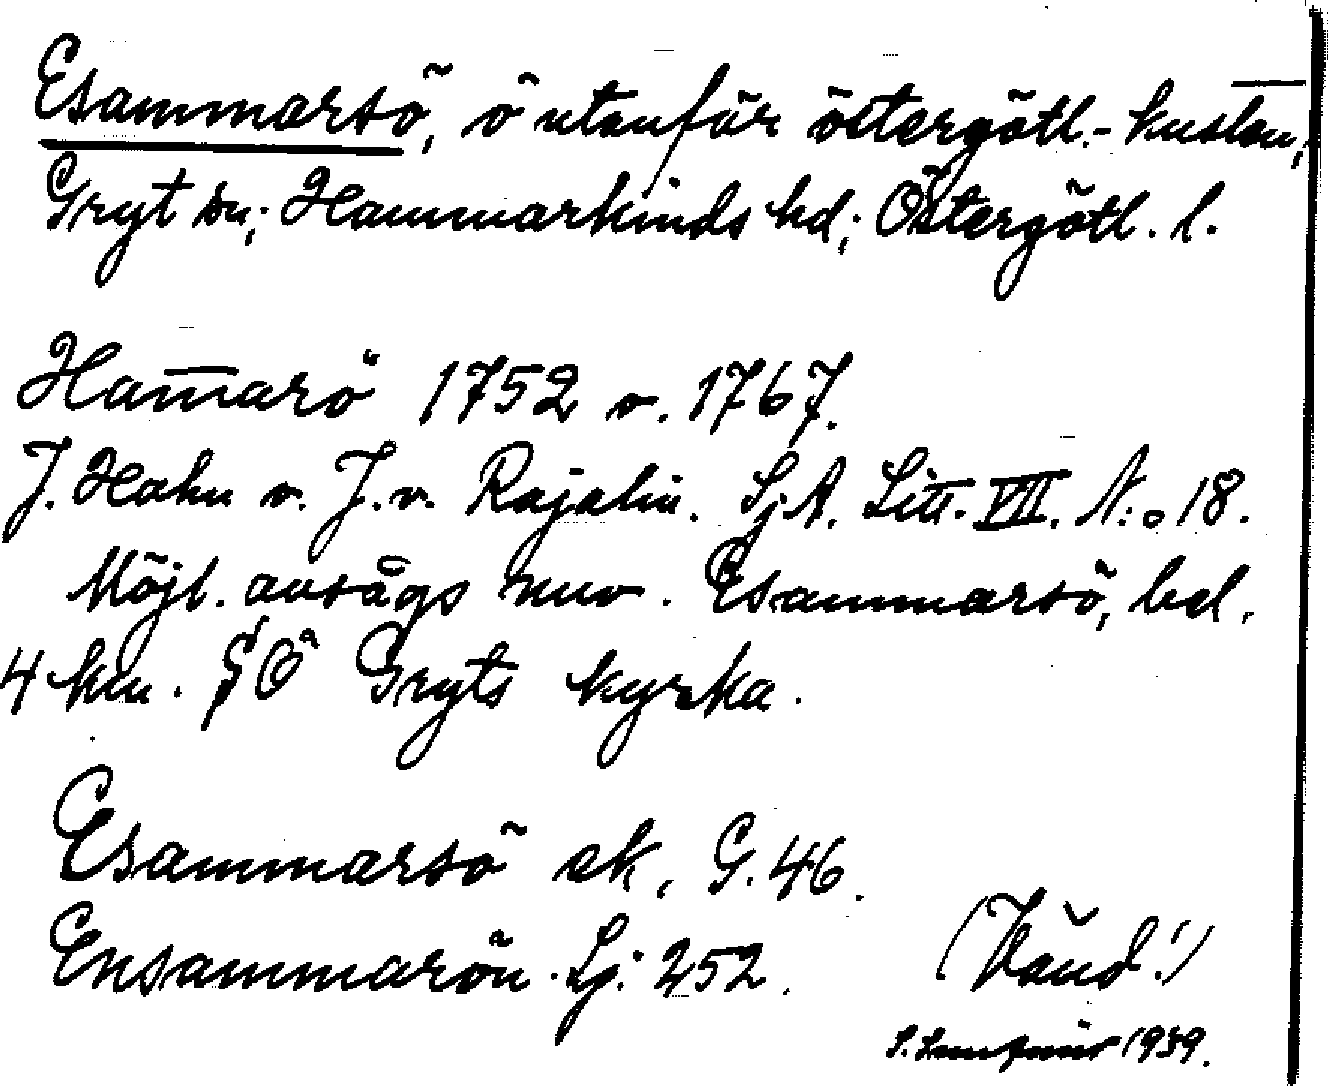 Esammarsö, ö utanför östergötl.-kusten,
Gryt sn; Hammarkinds hd; Östergötl. l.
Ham̅arö 1752 o. 1767.
J. Hahn o. J. v. Rajalin. Sj.A. Litt. VII. N:o 18.
Möjl. avsågs nuv. Esammarsö, bel.
4 km. SÖ Gryts kyrka.
Esammarsö ek. G. 46.
Ensammarön. Sj. 252.
(Vänd!)
S. 1939.